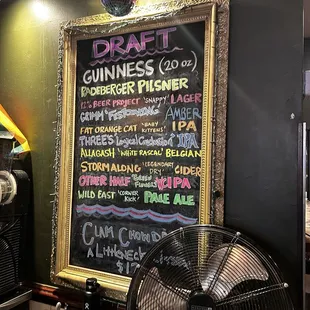 DRAFT
GUINNESS (20 oz)
RADEBERGER PILSNER
12% BEER PROJECT "SNAPPY" LAGER
GRIMM AMBER
FAT ORANGE CAT "BABY KITTENS" IPA
THREES "Logical Conclusion" IPA
ALLAGASH "WHITE RASCAL" BELGIAN
STORMALONG "LEGENDARY DRY" CIDER
OTHER HALF "Green Flowers" IPA
WILD EAST "CORNER KICK" PALE ALE
CLAM CHOWD